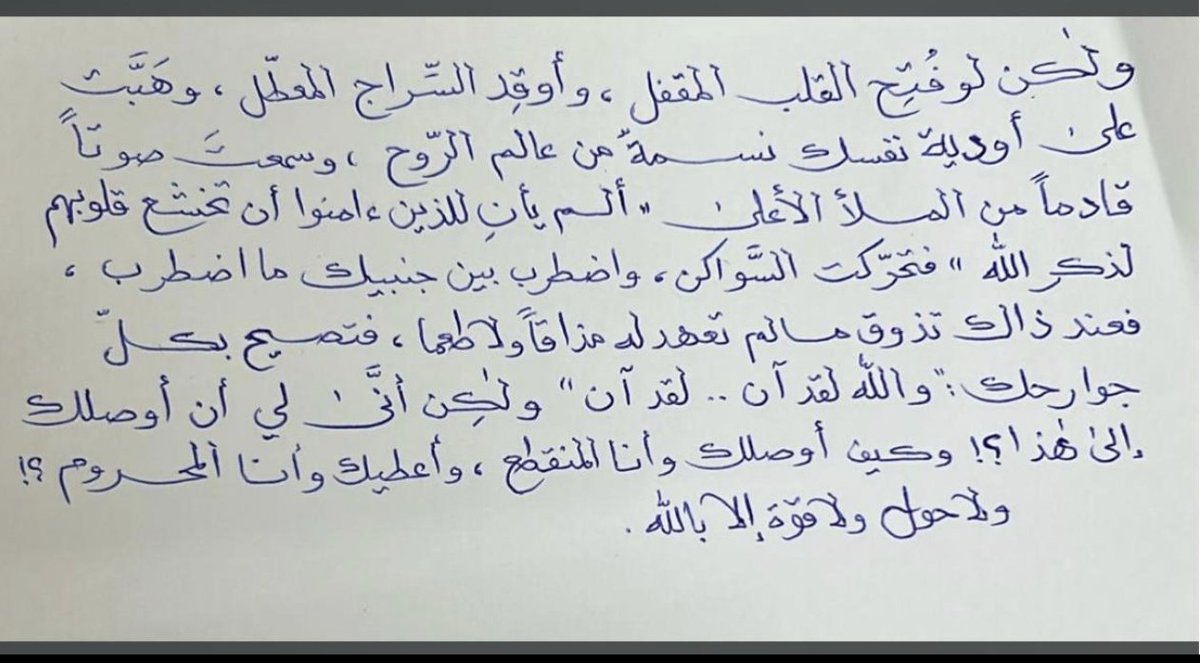 ولٰكن لو فُتِح القلب المقفل ، وأوقِد السّراج المعطّل ، وهَبَّت
علىٰ أودية نفسك نسمةٌ من عالم الرّوح ، وسمعتَ صوتاً
قادماً من الملأ الأعلىٰ "ألم يأنِ للذين ءامنوا أن تخشع قلوبهم
لذكر الله" فتحرّكت السَّواكن ، واضطرب بين جنبيك ما اضطرب ،
فعند ذاك تذوق مالم تعهد له مذاقاً ولا طعما ، فتصيح بكلّ
جوارحك : "والله لقد آن .. لقد آن" ولٰكِن أنَّىٰ لي أن أوصلك
إلىٰ هٰذا ؟! وكيف أوصلك وأنا المنقطع ، وأعطيك وأنا المحروم ؟!
ولا حول ولا قوّة إلا بالله .